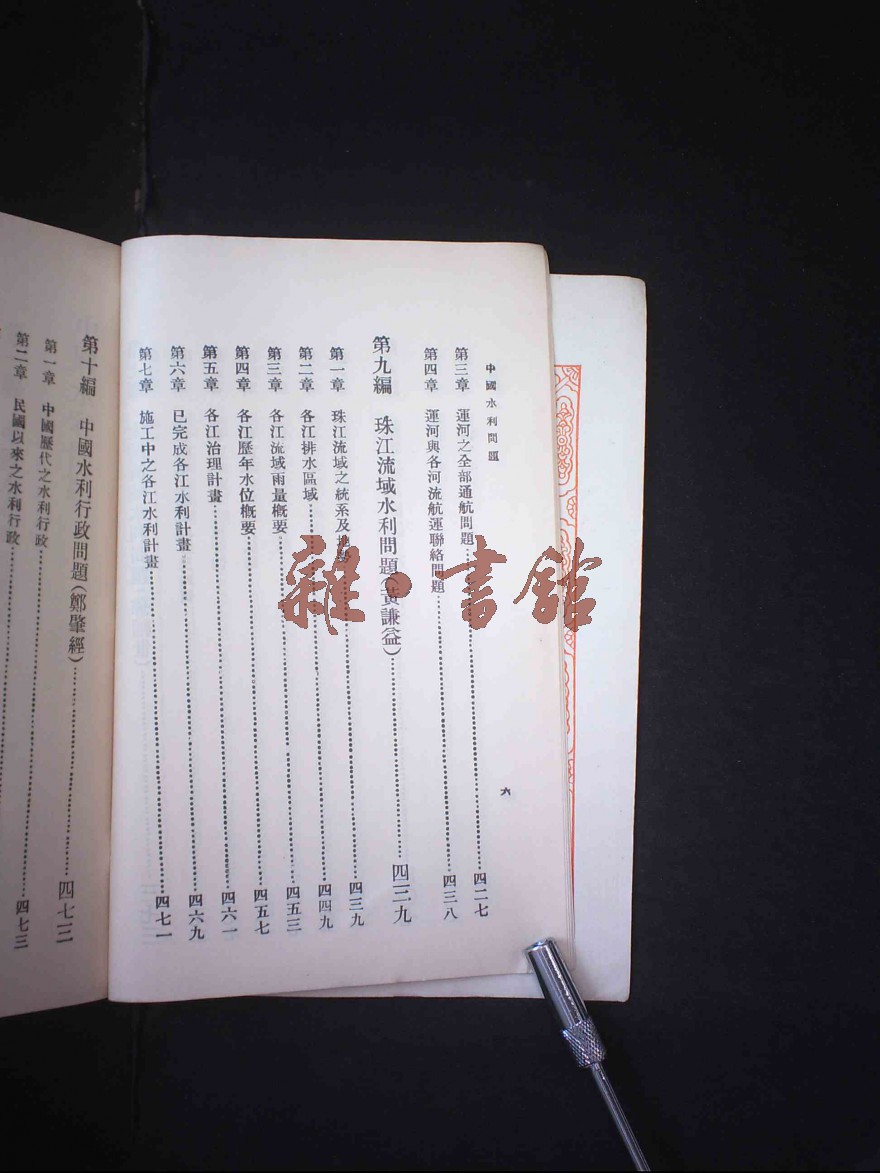 中國水利問題
六
第三章 運河之全部通航問題……四二七
第四章 運河與各河流航運聯絡問題……四三八
第九編 珠江流域水利問題(黃謙益)……四三九
第一章 珠江流域之統系及地勢……四三九
第二章 各江排水區域……四四九
第三章 各江流域雨量概要……四五三
第四章 各江歷年水位概要……四五七
第五章 各江治理計畫……四六一
第六章 已完成各江水利計畫……四六九
第七章 施工中之各江水利計畫……四七一
第十編 中國水利行政問題(鄭肇經)……四七三
第一章 中國歷代之水利行政
第二章 民國以來之水利行政……四七三
雜·書館